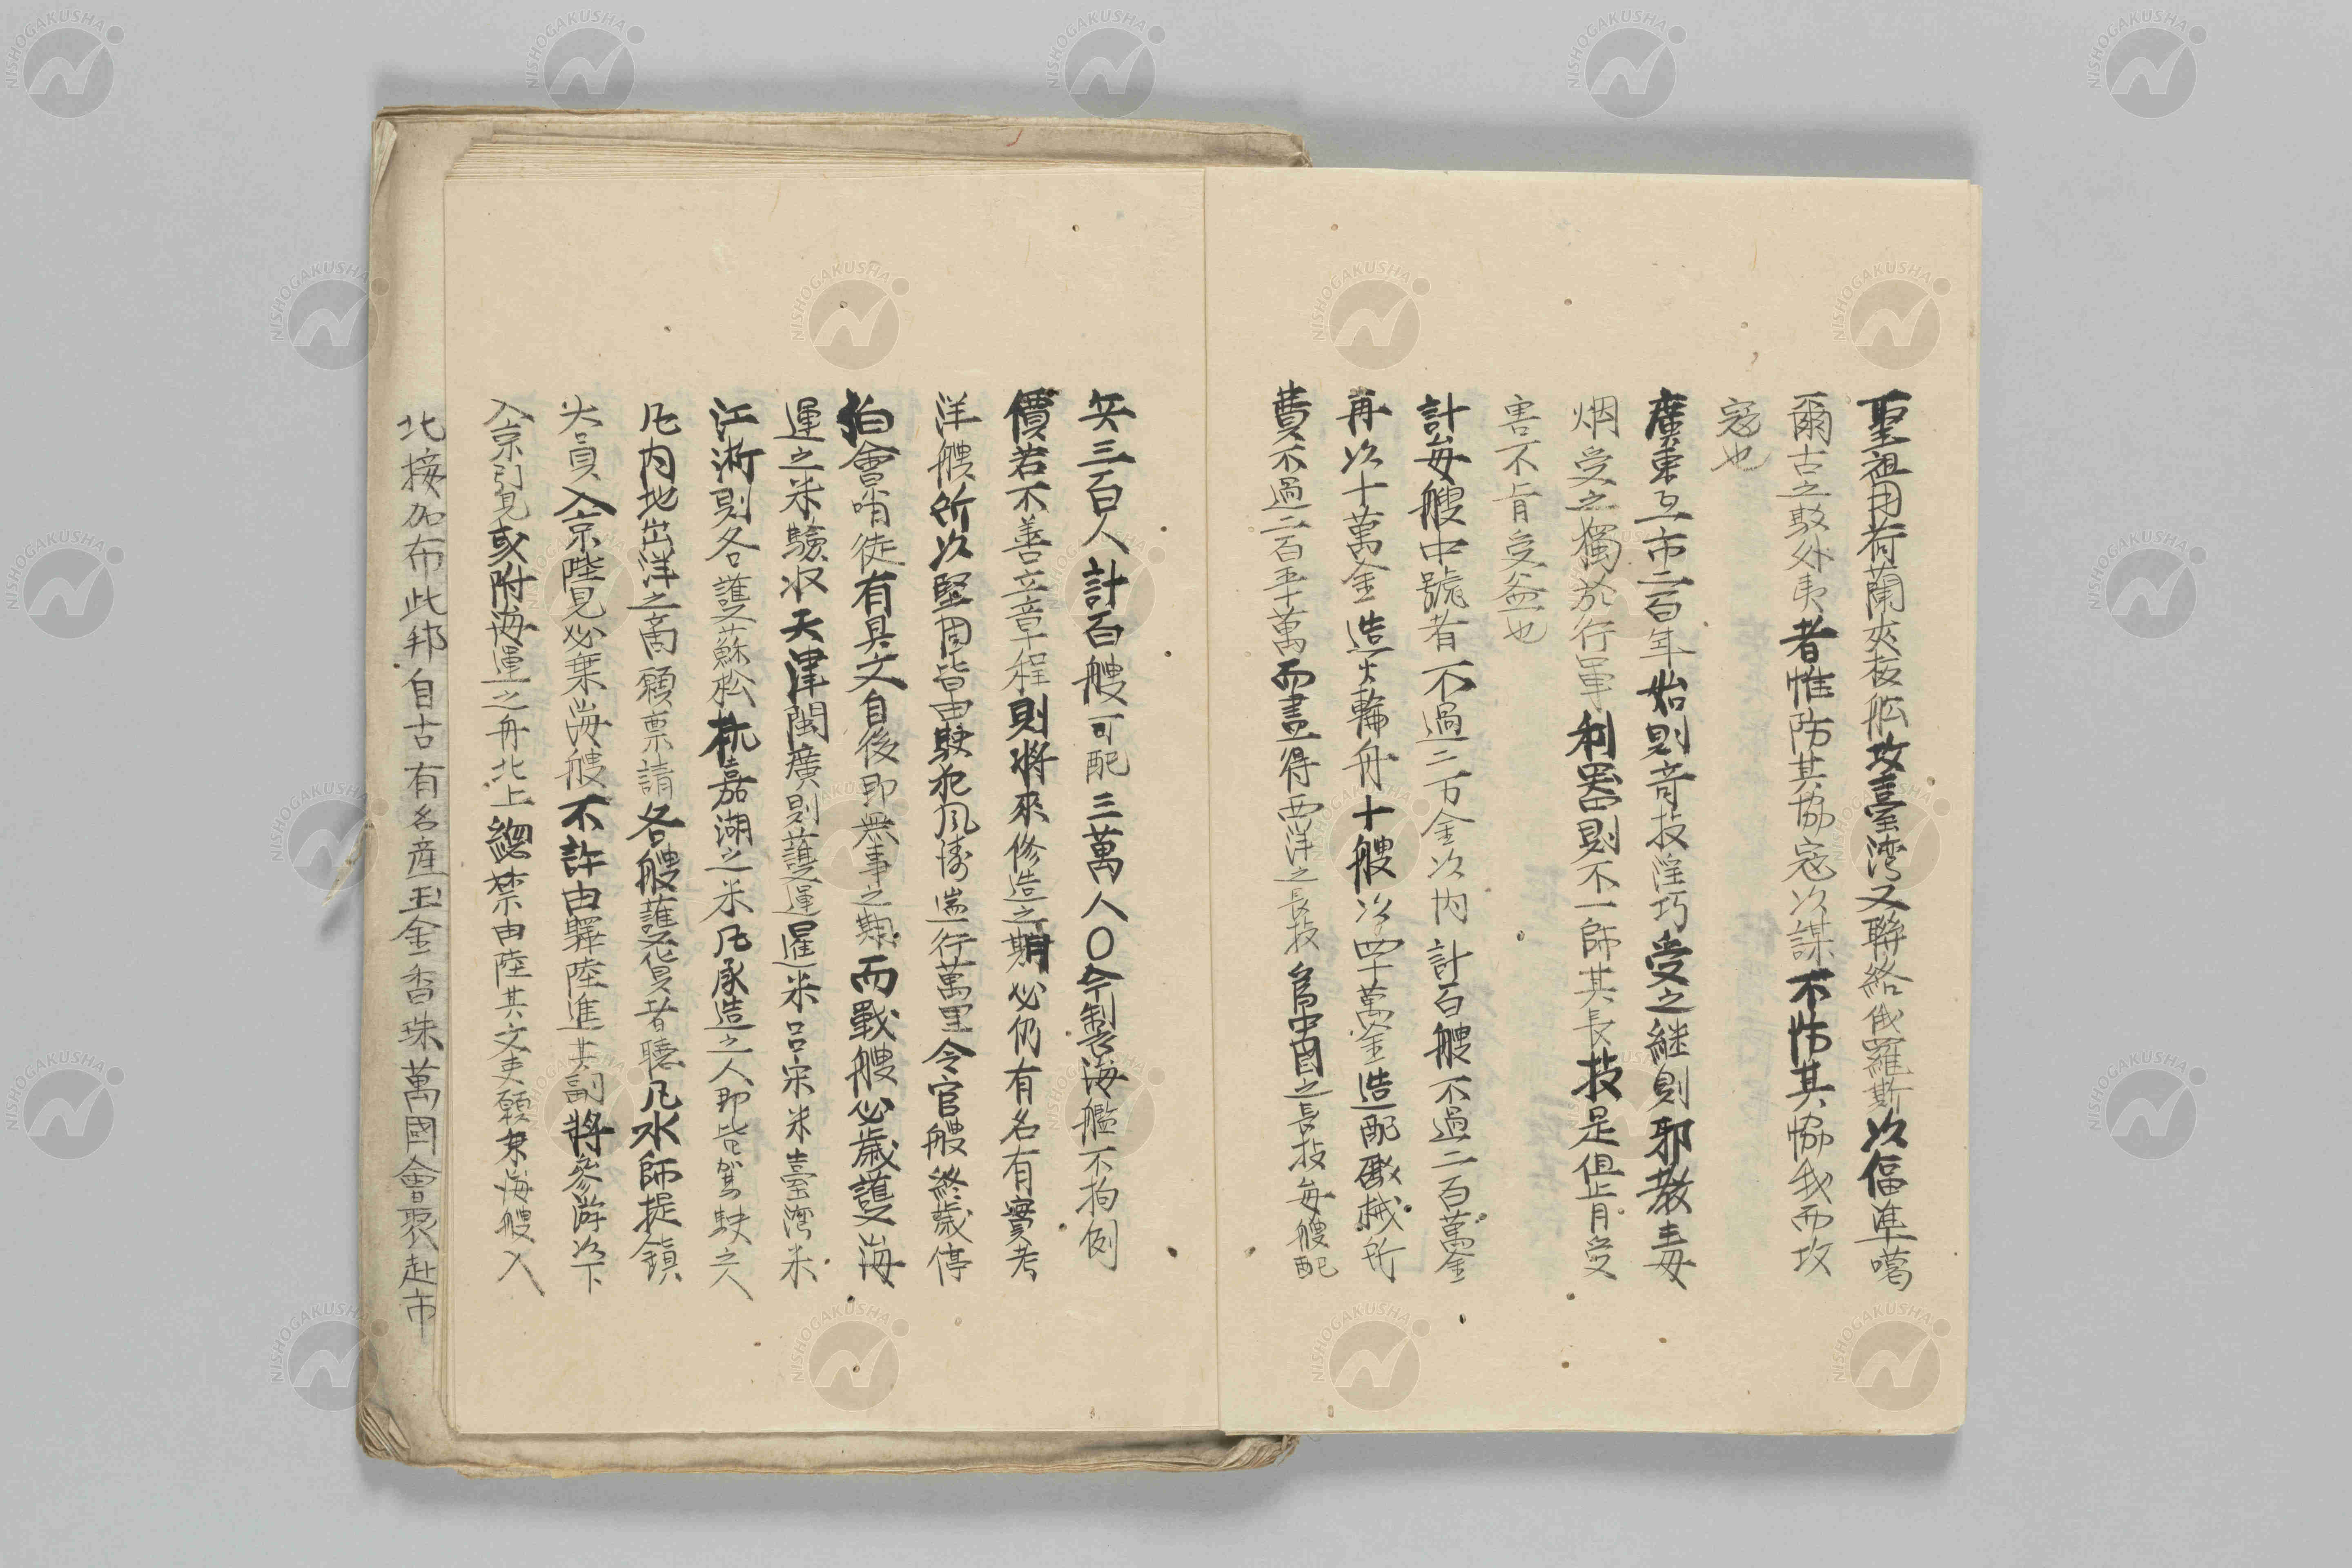 聖祖用荷蘭夾板舩攻臺湾又聯絡俄羅斯以偪準噶
爾古之馭外夷者惟防其協寇以謀不防其協我而攻
寇也
廣東互市二百年始則奇技淫巧受之継則邪教毒
烟受之獨於行軍利器則不一師其長技是但肯受
害不肯受益也
計毎艘中號者不過二万金以内計百艘不過二百萬金
再以十萬金造火輪舟十艘以四十萬金造配礟械所
費不過二百五十萬而盡得西洋之長技為中國之長技毎艘配
兵三百人計百艘可配三萬人〇今製海艦不拘例
價若不善立章程則將來修造之期必仍有名有實考
洋艘所以堅固皆由駛犯風濤遄行萬里今官艘終歳停
泊會哨徒有具文自後即無事之期而戰艘必歳護海
運之米驗収天津閩廣則護運暹米呂宋米臺湾米
江淅則各護蘇松杭嘉湖之米凡承造之人即皆駕駛之人
凡内地出洋之商願禀請各艘護貨者聴凡水師提鎮
大員入京陛見必乗海艘不許由驛陸進其副將參游以下
入京引見或附海運之舟北上總禁由陸其文吏願乗海艘入
北接加布此邦自古有名産玉金香珠萬國會聚赴市
NISHOGAKUSHA